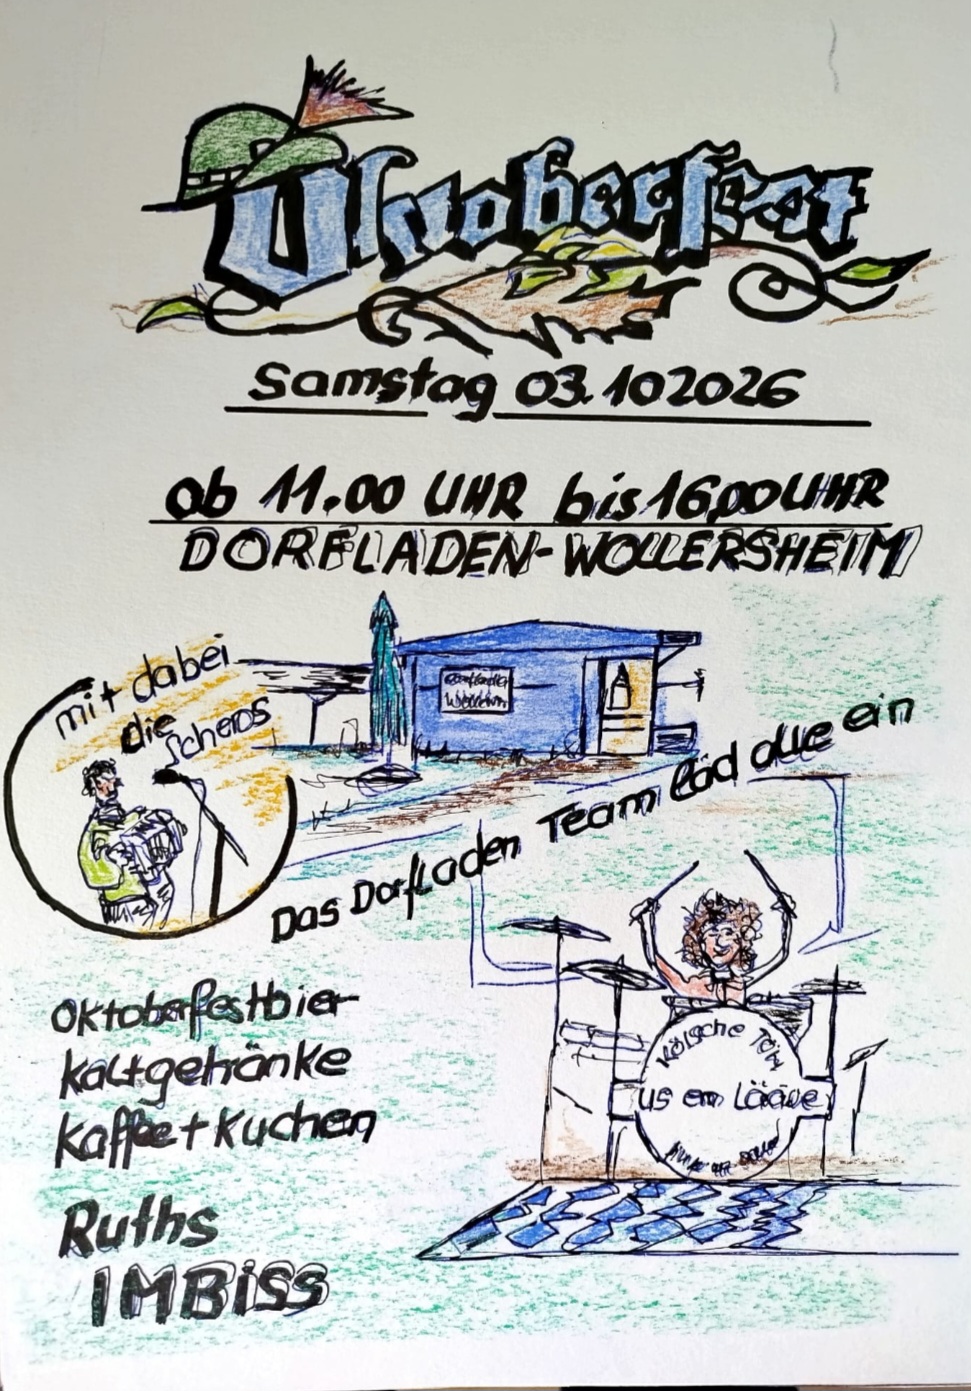 Oktoberfest
Samstag 03.102026
ab 11.00 UHR bis 16.00 UHR
DORFLADEN-WOLLERSHEIM
mit dabei
die
Das Dorfladen Team läd alle ein
Oktoberfestbier
Kaltgetränke
Kaffee + Kuchen
Kölsche Tön
us em Lääve
Ruths
IMBiss